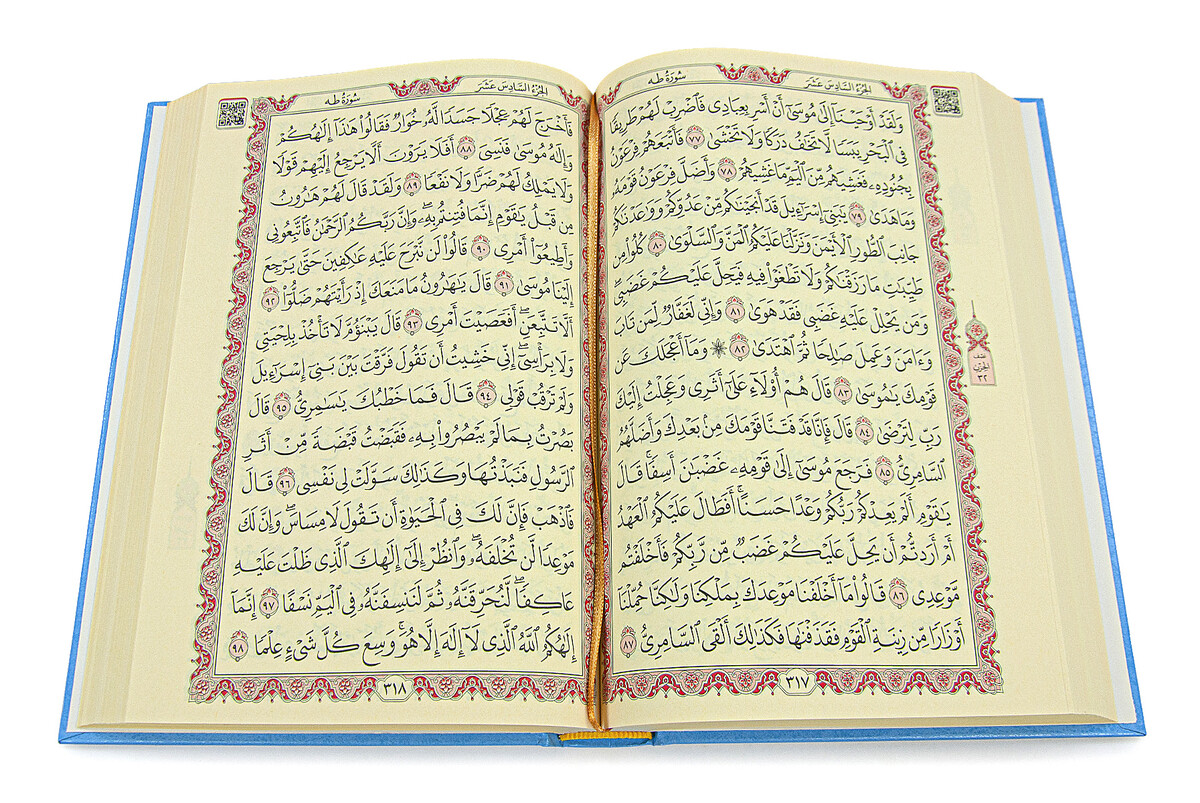 الجزء السادس عشر
سورة طه
وَلَقَدْ أَوْحَيْنَآ إِلَىٰ مُوسَىٰٓ أَنْ أَسْرِ بِعِبَادِى فَٱضْرِبْ لَهُمْ طَرِيقًا
فِى ٱلْبَحْرِ يَبَسًا لَّا تَخَٰفُ دَرَكًا وَلَا تَخْشَىٰ ٧٧ فَأَتْبَعَهُمْ فِرْعَوْنُ
بِجُنُودِهِۦ فَغَشِيَهُم مِّنَ ٱلْيَمِّ مَا غَشِيَهُمْ ٧٨ وَأَضَلَّ فِرْعَوْنُ قَوْمَهُۥ
وَمَا هَدَىٰ ٧٩ يَٰبَنِىٓ إِسْرَٰٓءِيلَ قَدْ أَنجَيْنَٰكُم مِّنْ عَدُوِّكُمْ وَوَٰعَدْنَٰكُمْ
جَانِبَ ٱلطُّورِ ٱلْأَيْمَنَ وَنَزَّلْنَا عَلَيْكُمُ ٱلْمَنَّ وَٱلسَّلْوَىٰ ٨٠ كُلُوا۟ مِن
طَيِّبَٰتِ مَا رَزَقْنَٰكُمْ وَلَا تَطْغَوْا۟ فِيهِ فَيَحِلَّ عَلَيْكُمْ غَضَبِى
وَمَن يَحْلِلْ عَلَيْهِ غَضَبِى فَقَدْ هَوَىٰ ٨١ وَإِنِّى لَغَفَّارٌ لِّمَن تَابَ
وَءَامَنَ وَعَمِلَ صَٰلِحًا ثُمَّ ٱهْتَدَىٰ ٨٢ ۞ وَمَآ أَعْجَلَكَ عَن
قَوْمِكَ يَٰمُوسَىٰ ٨٣ قَالَ هُمْ أُو۟لَآءِ عَلَىٰٓ أَثَرِى وَعَجِلْتُ إِلَيْكَ
رَبِّ لِتَرْضَىٰ ٨٤ قَالَ فَإِنَّا قَدْ فَتَنَّا قَوْمَكَ مِنۢ بَعْدِكَ وَأَضَلَّهُمُ
ٱلسَّامِرِىُّ ٨٥ فَرَجَعَ مُوسَىٰٓ إِلَىٰ قَوْمِهِۦ غَضْبَٰنَ أَسِفًا قَالَ
يَٰقَوْمِ أَلَمْ يَعِدْكُمْ رَبُّكُمْ وَعْدًا حَسَنًا أَفَطَالَ عَلَيْكُمُ ٱلْعَهْدُ
أَمْ أَرَدتُّمْ أَن يَحِلَّ عَلَيْكُمْ غَضَبٌ مِّن رَّبِّكُمْ فَأَخْلَفْتُم
مَّوْعِدِى ٨٦ قَالُوا۟ مَآ أَخْلَفْنَا مَوْعِدَكَ بِمَلْكِنَا وَلَٰكِنَّا حُمِّلْنَآ
أَوْزَارًا مِّن زِينَةِ ٱلْقَوْمِ فَقَذَفْنَٰهَا فَكَذَٰلِكَ أَلْقَى ٱلسَّامِرِىُّ ٨٧
٣١٧
نصف
الحزب
٣٢
الجزء السادس عشر
سورة طه
فَأَخْرَجَ لَهُمْ عِجْلًا جَسَدًا لَّهُۥ خُوَارٌ فَقَالُوا۟ هَٰذَآ إِلَٰهُكُمْ
وَإِلَٰهُ مُوسَىٰ فَنَسِىَ ٨٨ أَفَلَا يَرَوْنَ أَلَّا يَرْجِعُ إِلَيْهِمْ قَوْلًا
وَلَا يَمْلِكُ لَهُمْ ضَرًّا وَلَا نَفْعًا ٨٩ وَلَقَدْ قَالَ لَهُمْ هَٰرُونُ
مِن قَبْلُ يَٰقَوْمِ إِنَّمَا فُتِنتُم بِهِۦ وَإِنَّ رَبَّكُمُ ٱلرَّحْمَٰنُ فَٱتَّبِعُونِى
وَأَطِيعُوٓا۟ أَمْرِى ٩٠ قَالُوا۟ لَن نَّبْرَحَ عَلَيْهِ عَٰكِفِينَ حَتَّىٰ يَرْجِعَ
إِلَيْنَا مُوسَىٰ ٩١ قَالَ يَٰهَٰرُونُ مَا مَنَعَكَ إِذْ رَأَيْتَهُمْ ضَلُّوٓا۟ ٩٢
أَلَّا تَتَّبِعَنِ أَفَعَصَيْتَ أَمْرِى ٩٣ قَالَ يَبْنَؤُمَّ لَا تَأْخُذْ بِلِحْيَتِى
وَلَا بِرَأْسِىٓ إِنِّى خَشِيتُ أَن تَقُولَ فَرَّقْتَ بَيْنَ بَنِىٓ إِسْرَٰٓءِيلَ
وَلَمْ تَرْقُبْ قَوْلِى ٩٤ قَالَ فَمَا خَطْبُكَ يَٰسَٰمِرِىُّ ٩٥ قَالَ
بَصُرْتُ بِمَا لَمْ يَبْصُرُوا۟ بِهِۦ فَقَبَضْتُ قَبْضَةً مِّنْ أَثَرِ
ٱلرَّسُولِ فَنَبَذْتُهَا وَكَذَٰلِكَ سَوَّلَتْ لِى نَفْسِى ٩٦ قَالَ
فَٱذْهَبْ فَإِنَّ لَكَ فِى ٱلْحَيَوٰةِ أَن تَقُولَ لَا مِسَاسَ وَإِنَّ لَكَ
مَوْعِدًا لَّن تُخْلَفَهُۥ وَٱنظُرْ إِلَىٰٓ إِلَٰهِكَ ٱلَّذِى ظَلْتَ عَلَيْهِ
عَاكِفًا لَّنُحَرِّقَنَّهُۥ ثُمَّ لَنَنسِفَنَّهُۥ فِى ٱلْيَمِّ نَسْفًا ٩٧ إِنَّمَآ
إِلَٰهُكُمُ ٱللَّهُ ٱلَّذِى لَآ إِلَٰهَ إِلَّا هُوَ وَسِعَ كُلَّ شَىْءٍ عِلْمًا ٩٨
٣١٨